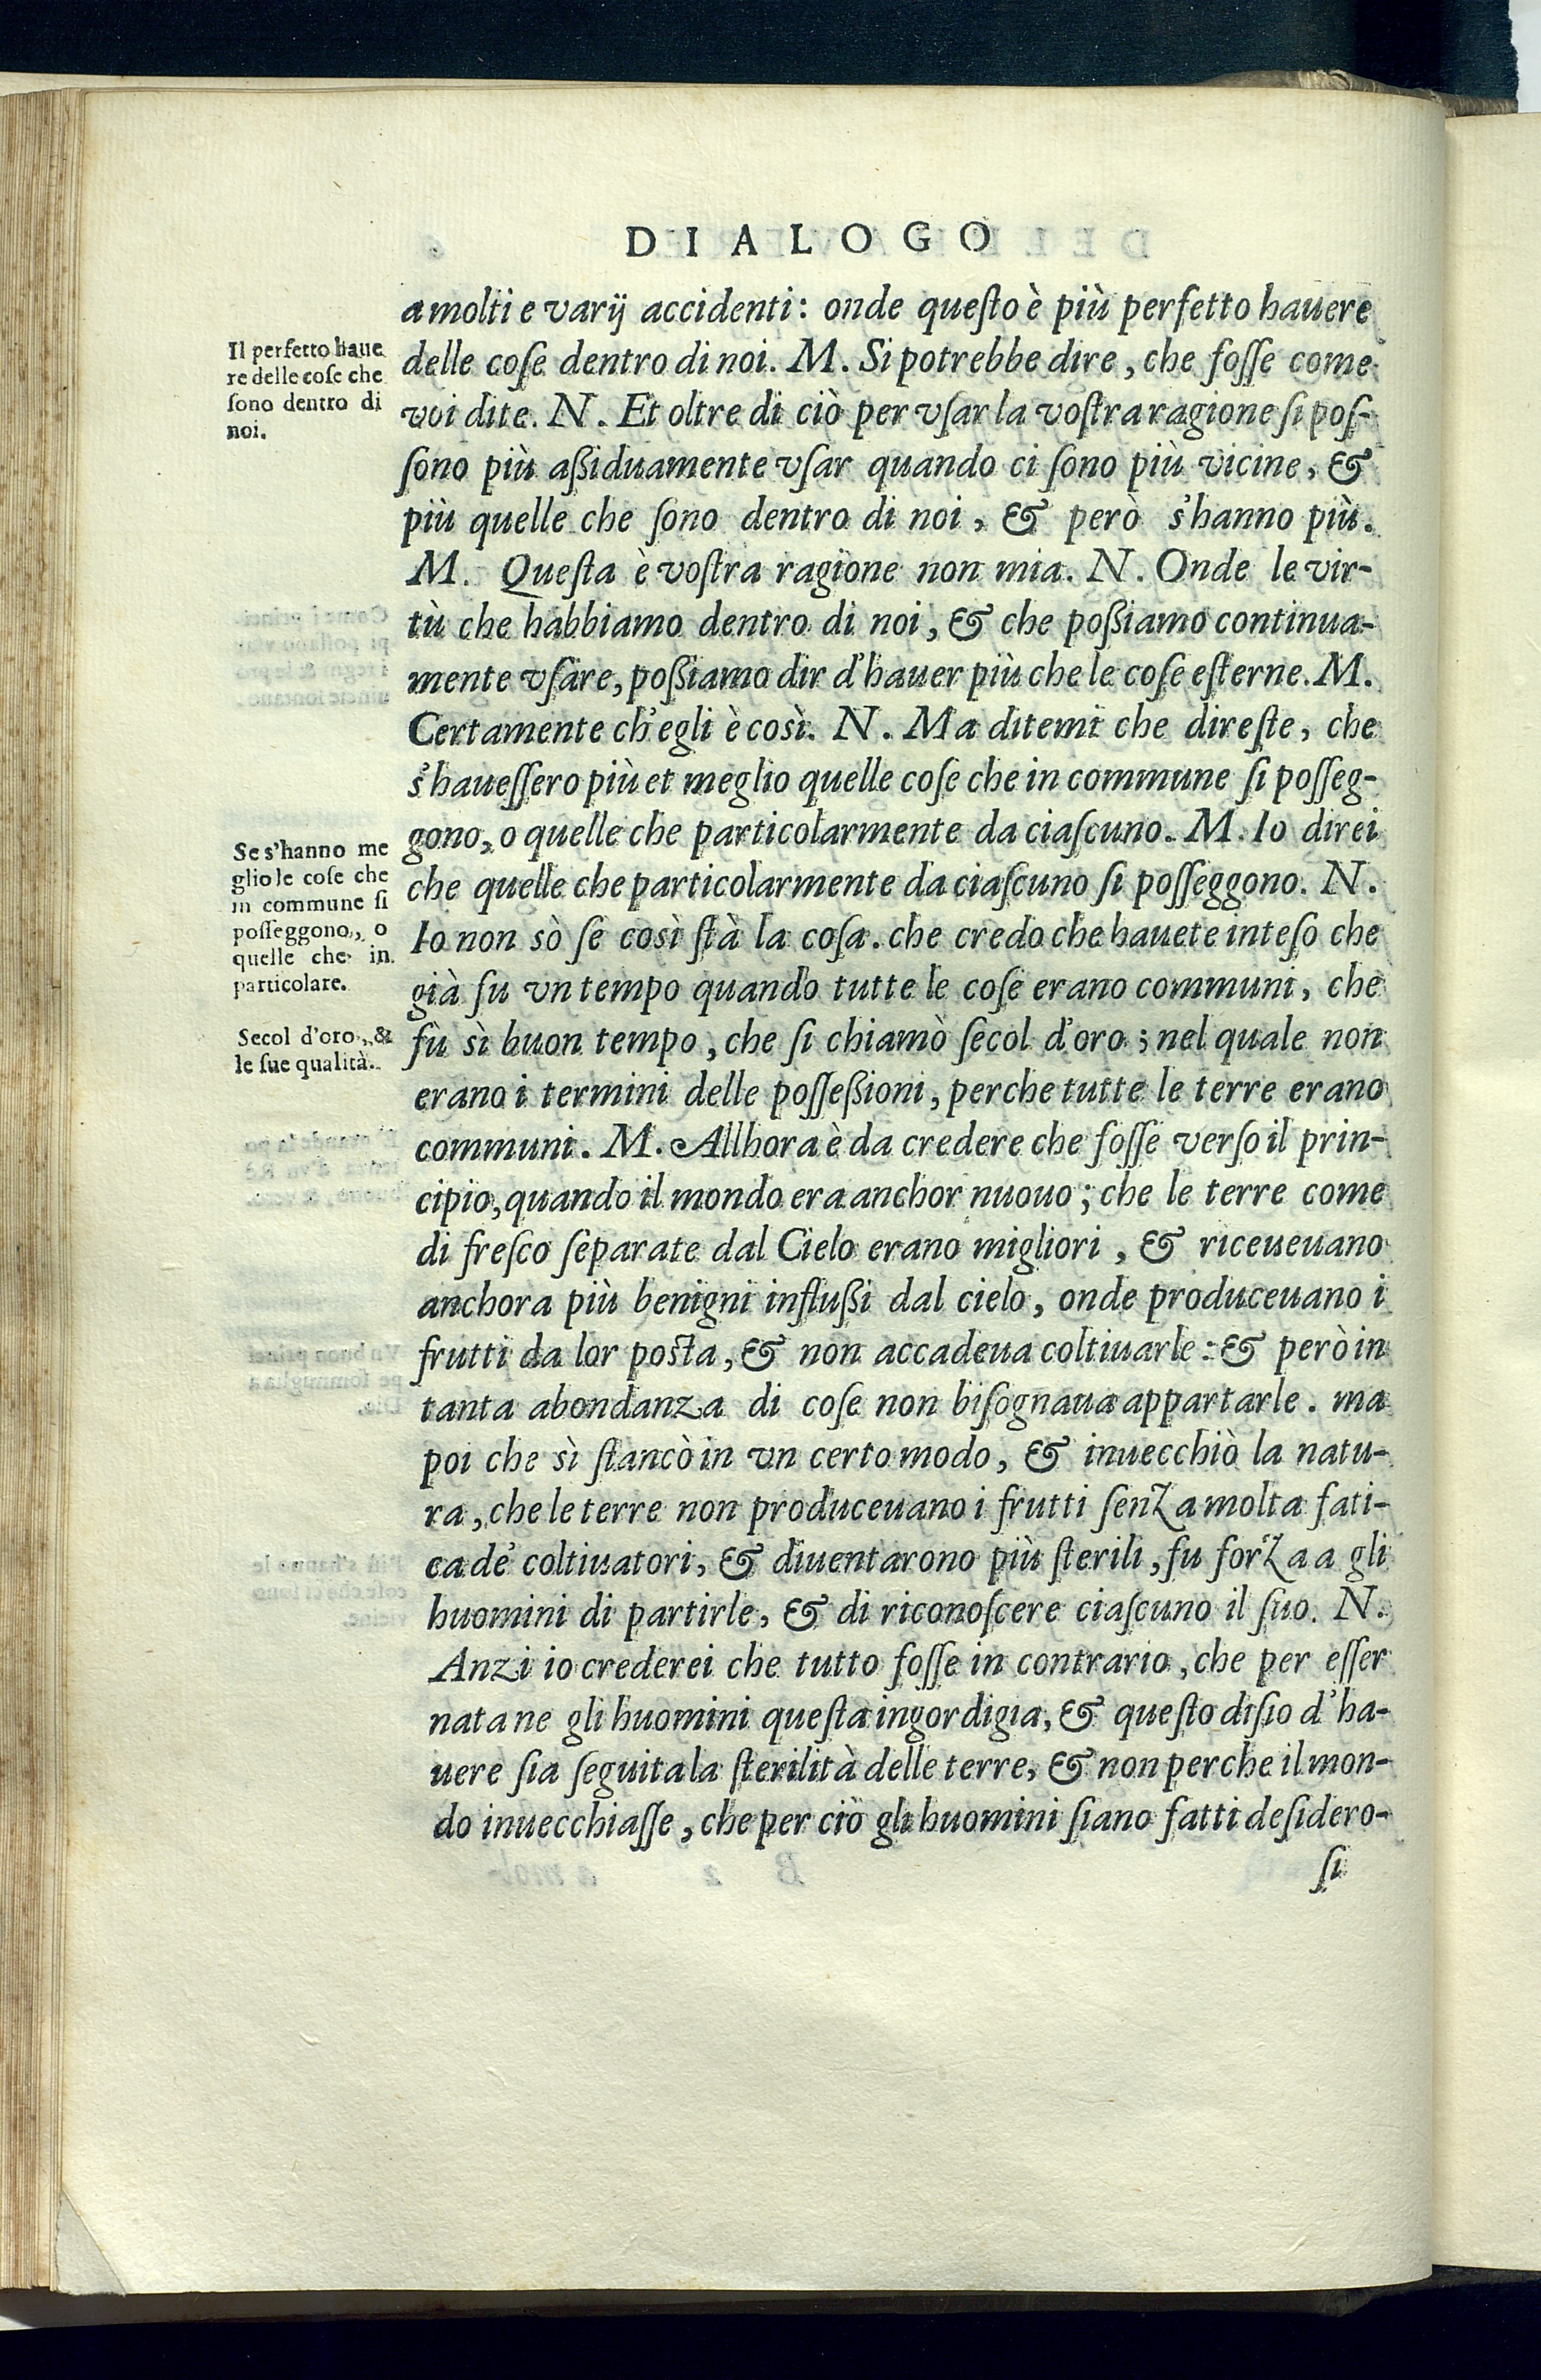 DIALOGO
a molti e varij accidenti: onde queſto è più perfetto hauere
Il perfetto haue
re delle coſe che
ſono dentro di
noi.
delle coſe dentro di noi. M. Si potrebbe dire, che foſſe come
voi dite. N. Et oltre di ciò per vſar la voſtra ragione ſi poſ-
ſono più aßiduamente vſar quando ci ſono più vicine, &
più quelle che ſono dentro di noi, & però s'hanno più.
M. Queſta è voſtra ragione non mia. N. Onde le vir-
tù che habbiamo dentro di noi, & che poßiamo continua-
mente vſare, poßiamo dir d'hauer più che le coſe eſterne. M.
Certamente ch'egli è così. N. Ma ditemi che direſte, che
s'haueſſero più et meglio quelle coſe che in commune ſi poſſeg-
gono, o quelle che particolarmente da ciaſcuno. M. Io direi
Se s'hanno me
glio le coſe che
in commune ſi
poſſeggono, o
quelle che in
particolare.
che quelle che particolarmente da ciaſcuno ſi poſſeggono. N.
Io non sò ſe così ſtà la coſa. che credo che hauete inteſo che
già fu vn tempo quando tutte le coſe erano communi, che
Secol d'oro, &
le ſue qualità.
fù sì buon tempo, che ſi chiamò ſecol d'oro; nel quale non
erano i termini delle poſſeßioni, perche tutte le terre erano
communi. M. Allhora è da credere che foſſe verſo il prin-
cipio, quando il mondo era anchor nuouo; che le terre come
di freſco ſeparate dal Cielo erano migliori, & riceueuano
anchora più benigni influßi dal cielo, onde produceuano i
frutti da lor poſta, & non accadeua coltiuarle: & però in
tanta abondanza di coſe non biſognaua appartarle. ma
poi che sì ſtancò in vn certo modo, & inuecchiò la natu-
ra, che le terre non produceuano i frutti ſenza molta fati-
ca de' coltiuatori, & diuentarono più ſterili, fu forza a gli
huomini di partirle, & di riconoſcere ciaſcuno il ſuo. N.
Anzi io crederei che tutto foſſe in contrario, che per eſſer
nata ne gli huomini queſta ingordigia, & queſto diſio d'ha-
uere ſia ſeguita la ſterilità delle terre, & non perche il mon-
do inuecchiaſſe, che per ciò gli huomini ſiano fatti deſidero-
ſi